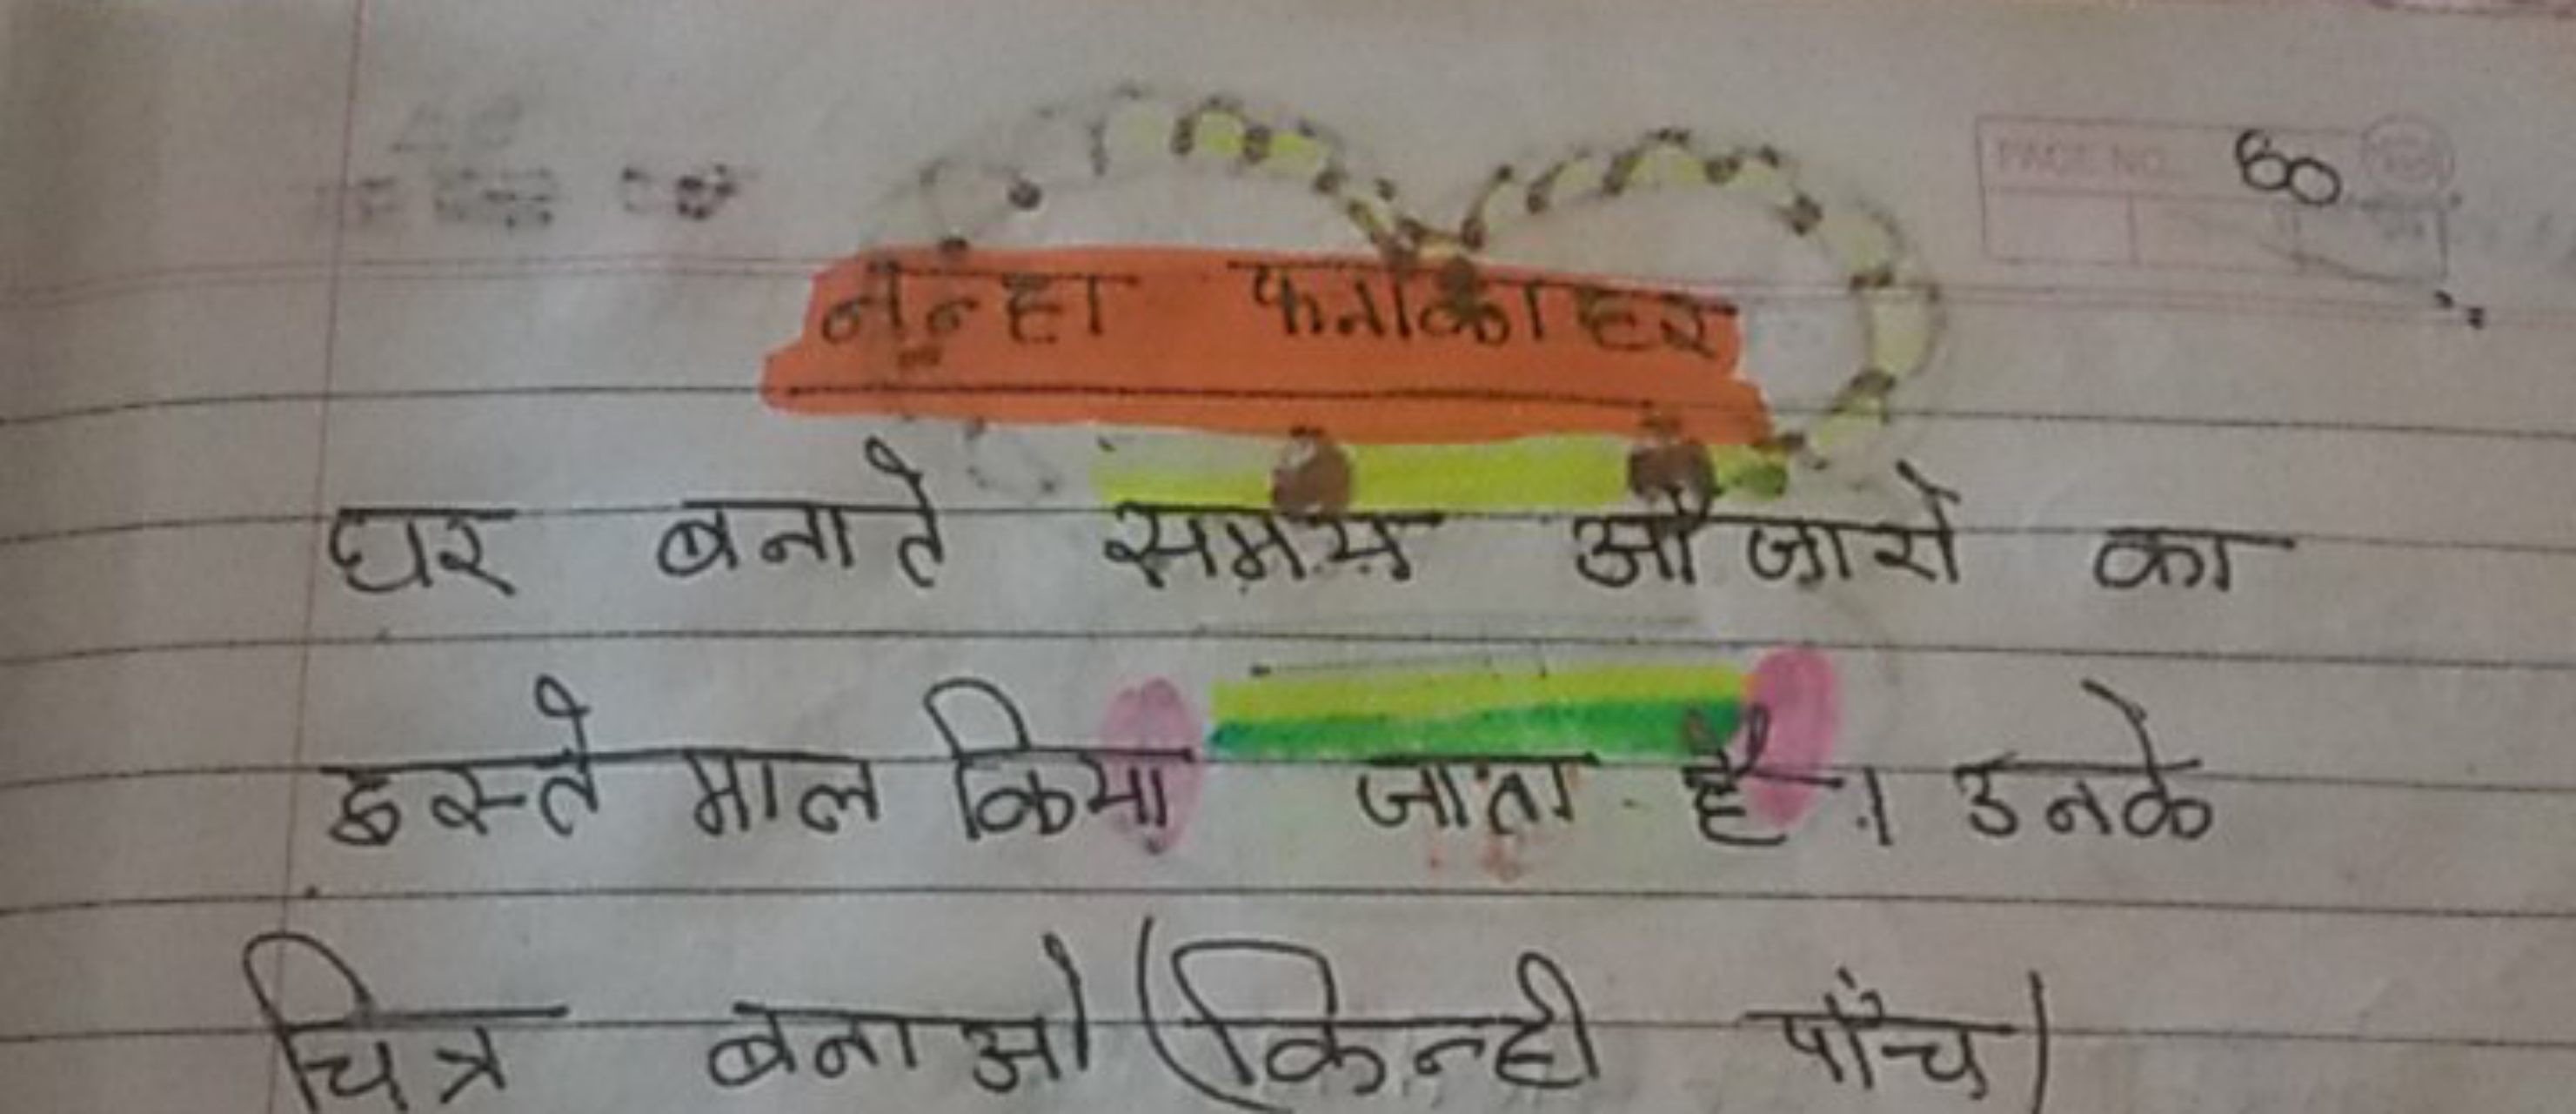 PAGE NO. 60
नन्हा फनीकाहर
घर बनाते समय औजारो का
इस्ते माल किया जाता है। उनके
चित्र बनाओ (किन्ही पाँच)